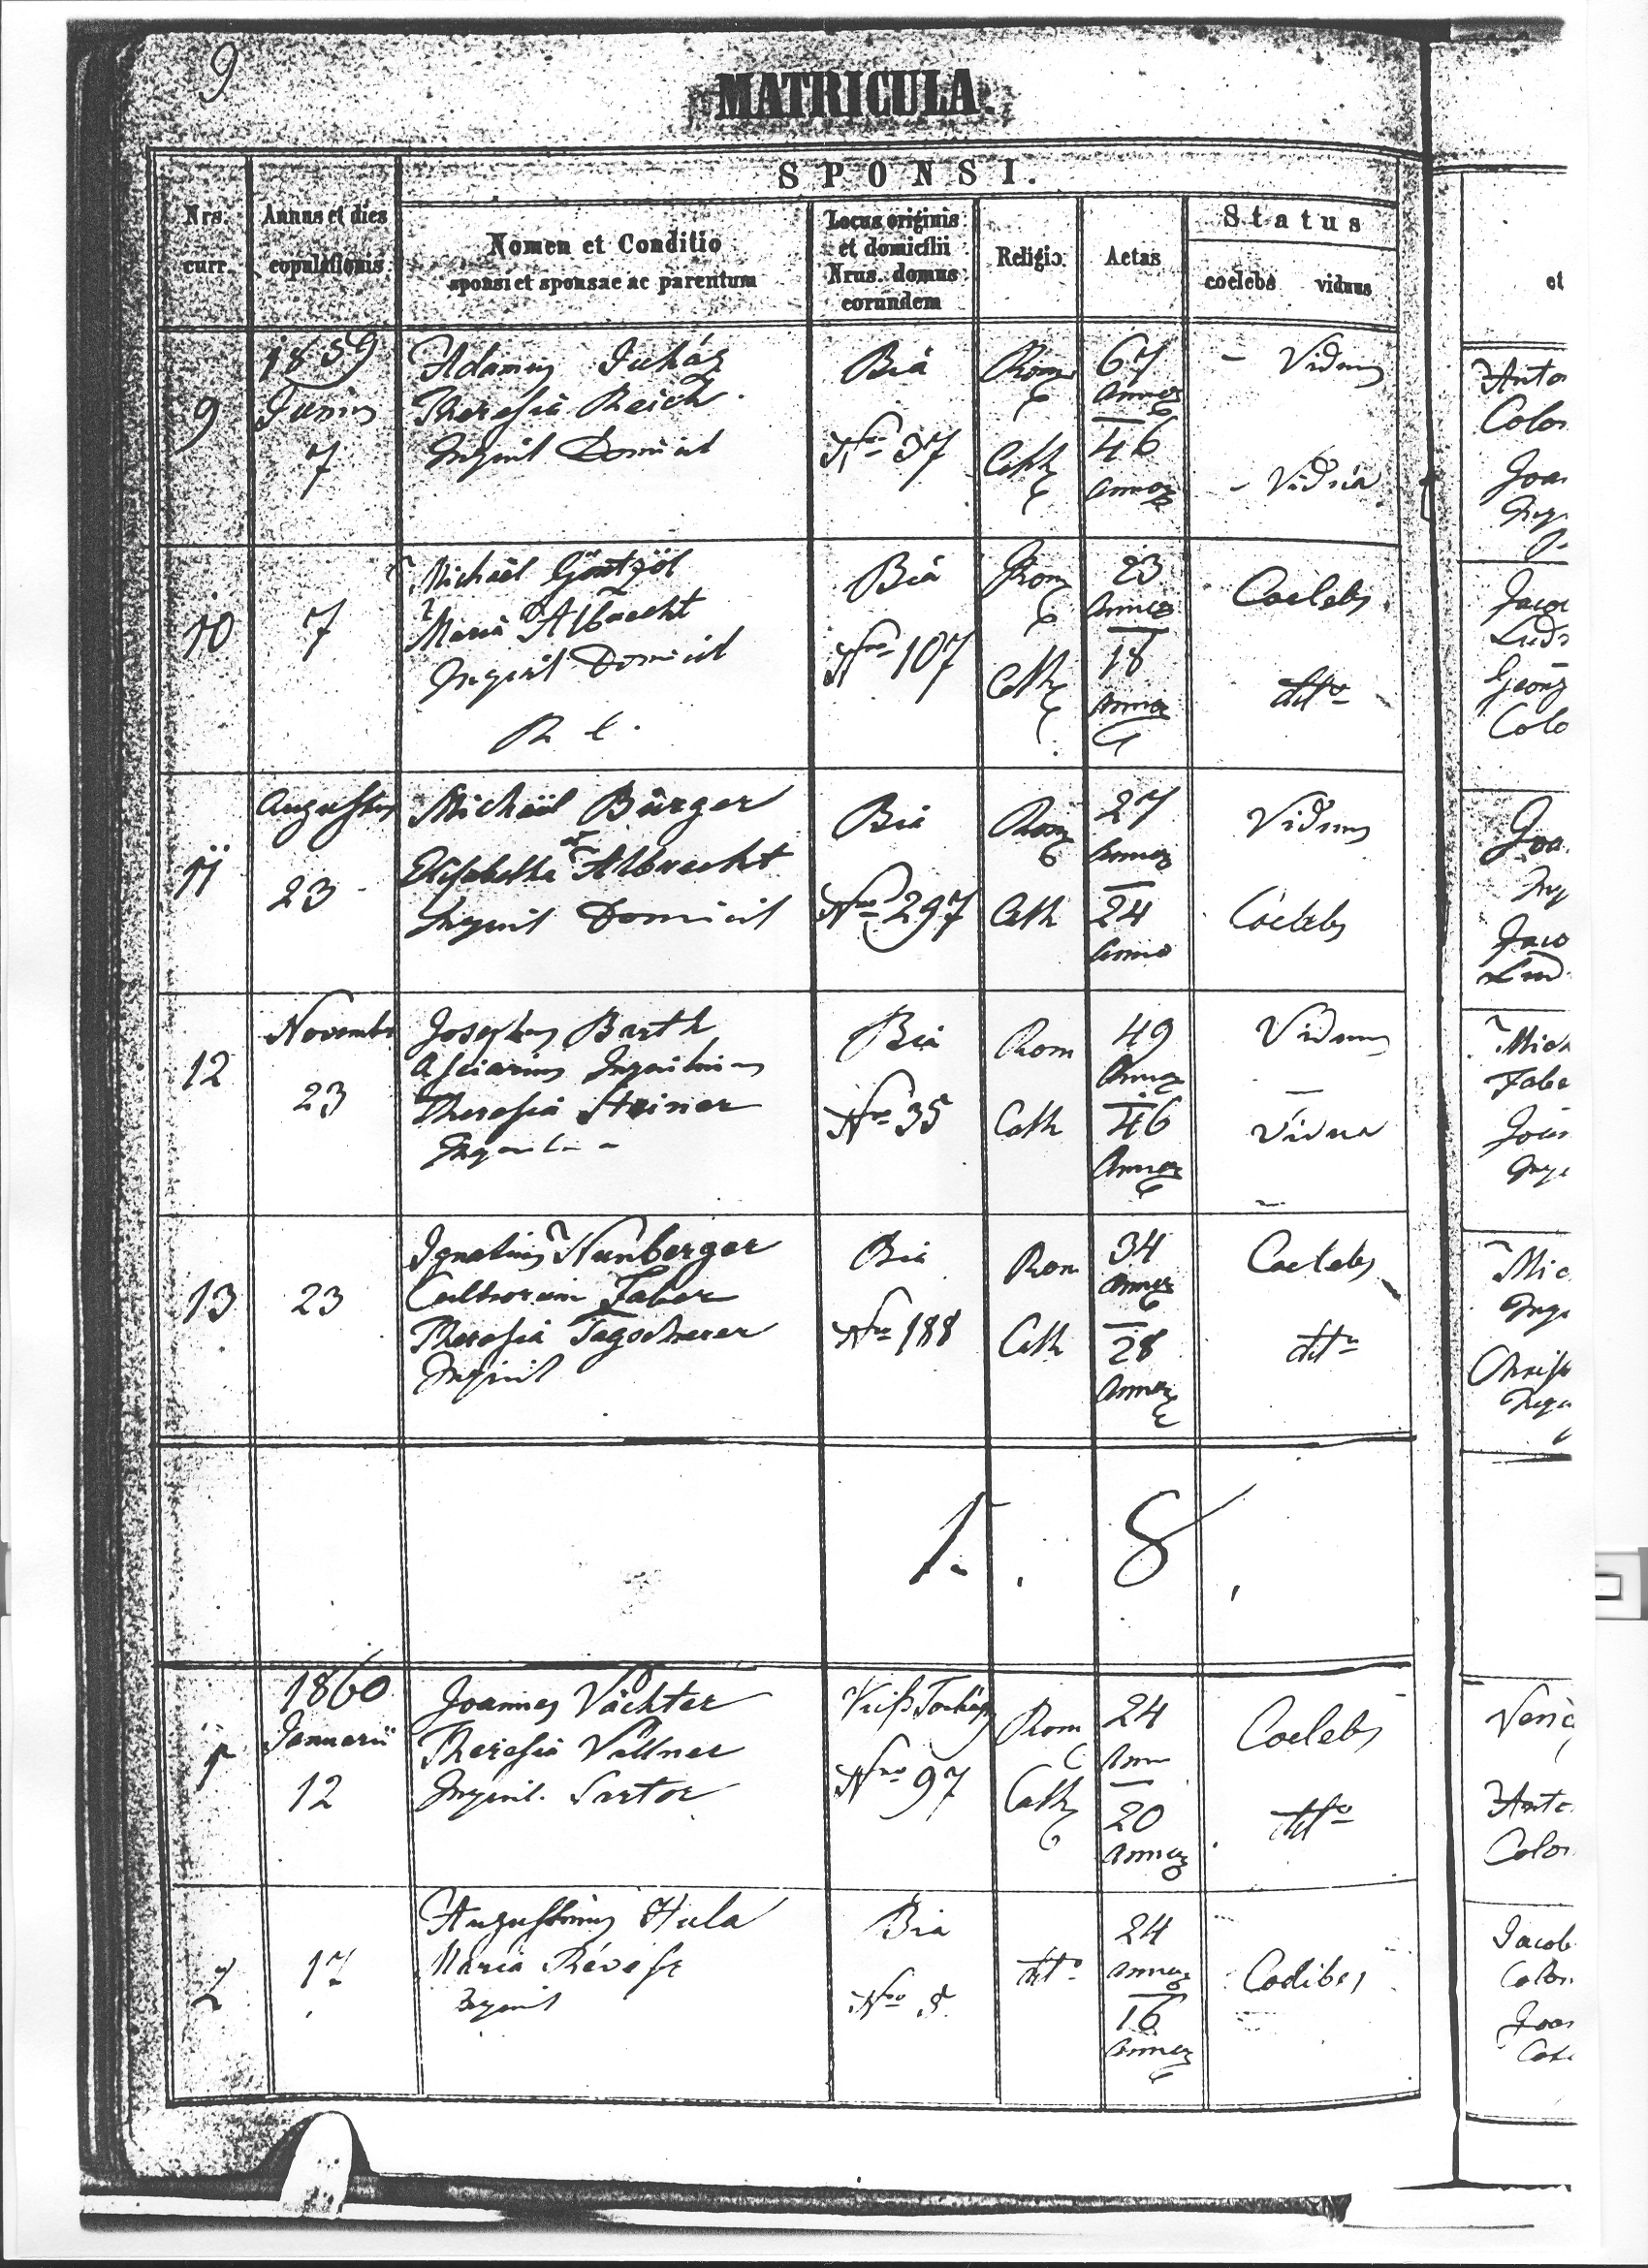 9
MATRICULA.
SPONSI.
Nrs. curr.
Annus et dies copulationis
Nomen et Conditio
sponsi et sponsae ac parentum
Locus originis
et domicilii
Nrus. domus
eorundem
Religio.
Aetas
Status
coelebs viduus
et
1859
9 Junius 7
Adamus Juház
Theresia Reich.
Inquil Domicil
Biá
Nro 37
Rom
Cath
67
Annor
46
Annor
- Viduus
- Vidua
Anto
Colon
Joa
10 7
Michaël Göntzöl
Maria Albrecht
Inquil Domicil
R. C.
Biá
Nro 107
Rom
Cath
23
Annor
18
Annor
Coelebs
ditto
Jaco
Georg
Colo
11 Augustus 23
Michaël Bürger
et
Elisabetha Albrecht
Inquil Domicil
Bia
Nro 297
Rom
Cath
27
Annor
24
Anno
Viduus
Coelebs
Joa
Jaco
12 Novembr 23
Josephus Barth
Asciarius Inquilinus
Theresia Steiner
Bia
Nro 35
Rom
Cath
49
Annor
46
Annor
Viduus
Vidua
Mich
Fabe
13 23
Ignatius Nunberger
Faber
Theresia Tagscherer
Inquil
Bia
Nro 188
Rom
Cath
34
Annor
28
Annor
Coelebs
ditto
Mic
Christ
1. 8.
1860
1 Januarii 12
Joannes Vächter
Theresia Vellner
Inquil. Sartor
Nro 97
Rom
Cath
24
Ann
20
Annor
Coelebs
ditto
Anto
Colon
2 17
Augustinus Hula
Maria Révész
Inquil
Bia
Nro 8
ditto
24
Annor
16
Annor
Coelibes
Jacob
Colon
Joan